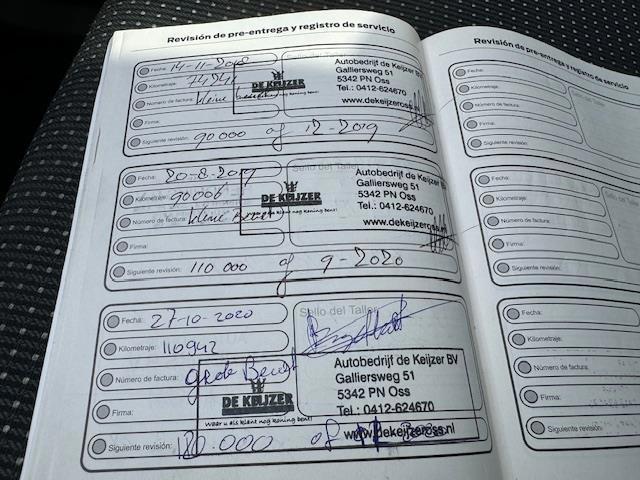 Revisión de pre-entrega y registro de servicio
Fecha: 14-11-2018
Kilometraje: 74241
Número de factura: kleine
Firma:
Siguiente revisión: 90000 of 12-2019
DE KEIJZER
Autobedrijf de Keijzer BV
Galliersweg 51
5342 PN Oss
Tel.: 0412-624670
www.dekeijzeross.nl
Fecha: 20-8-2019
Kilometraje: 90006
Número de factura: kleine Beurt
Firma:
Siguiente revisión: 110 000 of 9-2020
Sello del Taller
DE KEIJZER
Waar u als klant nog koning bent!
Autobedrijf de Keijzer B
Galliersweg 51
5342 PN Oss
Tel.: 0412-624670
www.dekeijzeross.nl
Fecha: 27-10-2020
Kilometraje: 110942
Número de factura: grote Beurt
Firma:
Siguiente revisión: 130.000 of
Sello del Taller
DE KEIJZER
Waar u als klant nog koning bent!
Autobedrijf de Keijzer BV
Galliersweg 51
5342 PN Oss
Tel.: 0412-624670
www.dekeijzeross.nl
Revisión de pre-entrega y registro de servicio
Fecha:
Kilometraje:
Número de factura:
Firma:
Siguiente revisión:
Fecha:
Kilometraje:
Número de factura:
Firma:
Siguiente revisión:
Fecha:
Kilometraje:
Número de factura:
Firma:
Siguiente revisión: